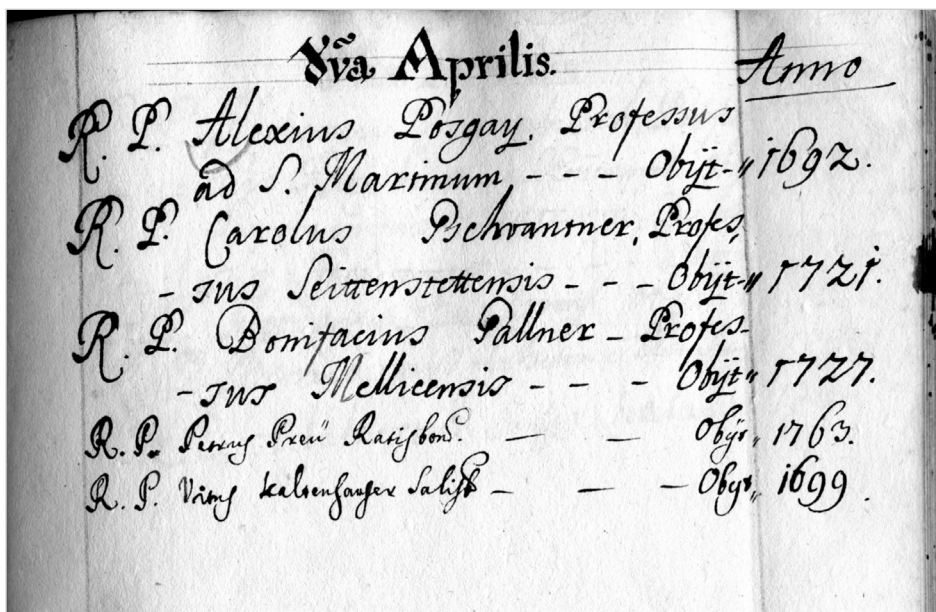 Vᵃ̃ Aprilis. Anno
R. P. Alexius Posgay. Professus
ad S. Martinum, - - - Obijt-„ 1692.
R. P. Carolus Pschvantner, Profes,
- sus Seittenstettensis - - - Obijt-„ 1721.
R. P. Bonifacius Pallner - Profes-
- sus Mellicensis - - - Obijt„ 1727.
R. P. Petrus Preü Ratisbon. — — Obijt„ 1763.
R. P. Vitus Kaltenhauser Salisb — — — Obijt„ 1699.